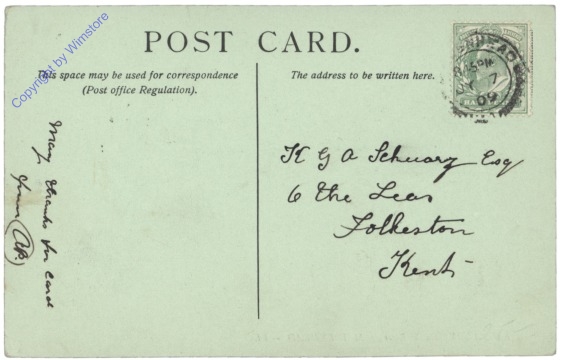 POST CARD.
This space may be used for correspondence
(Post office Regulation).
The address to be written here.
Copyright by Wimstore
Many thanks for card
from
K G A Schwarz Esq
6 The Leas
Folkeston
Kent
09